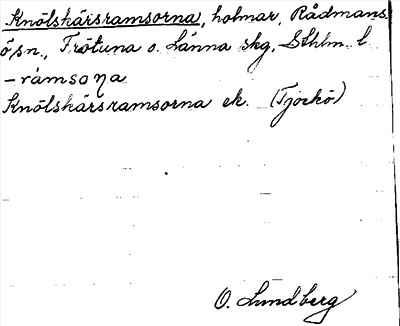 Knölskärsramsorna, holmar, Rådmans
ö sn., Frötuna o. Länna skg, Sthlm. l
- ràmsoṇa
Knölskärsramsorna ek. (Tjockö)
O. Lundberg